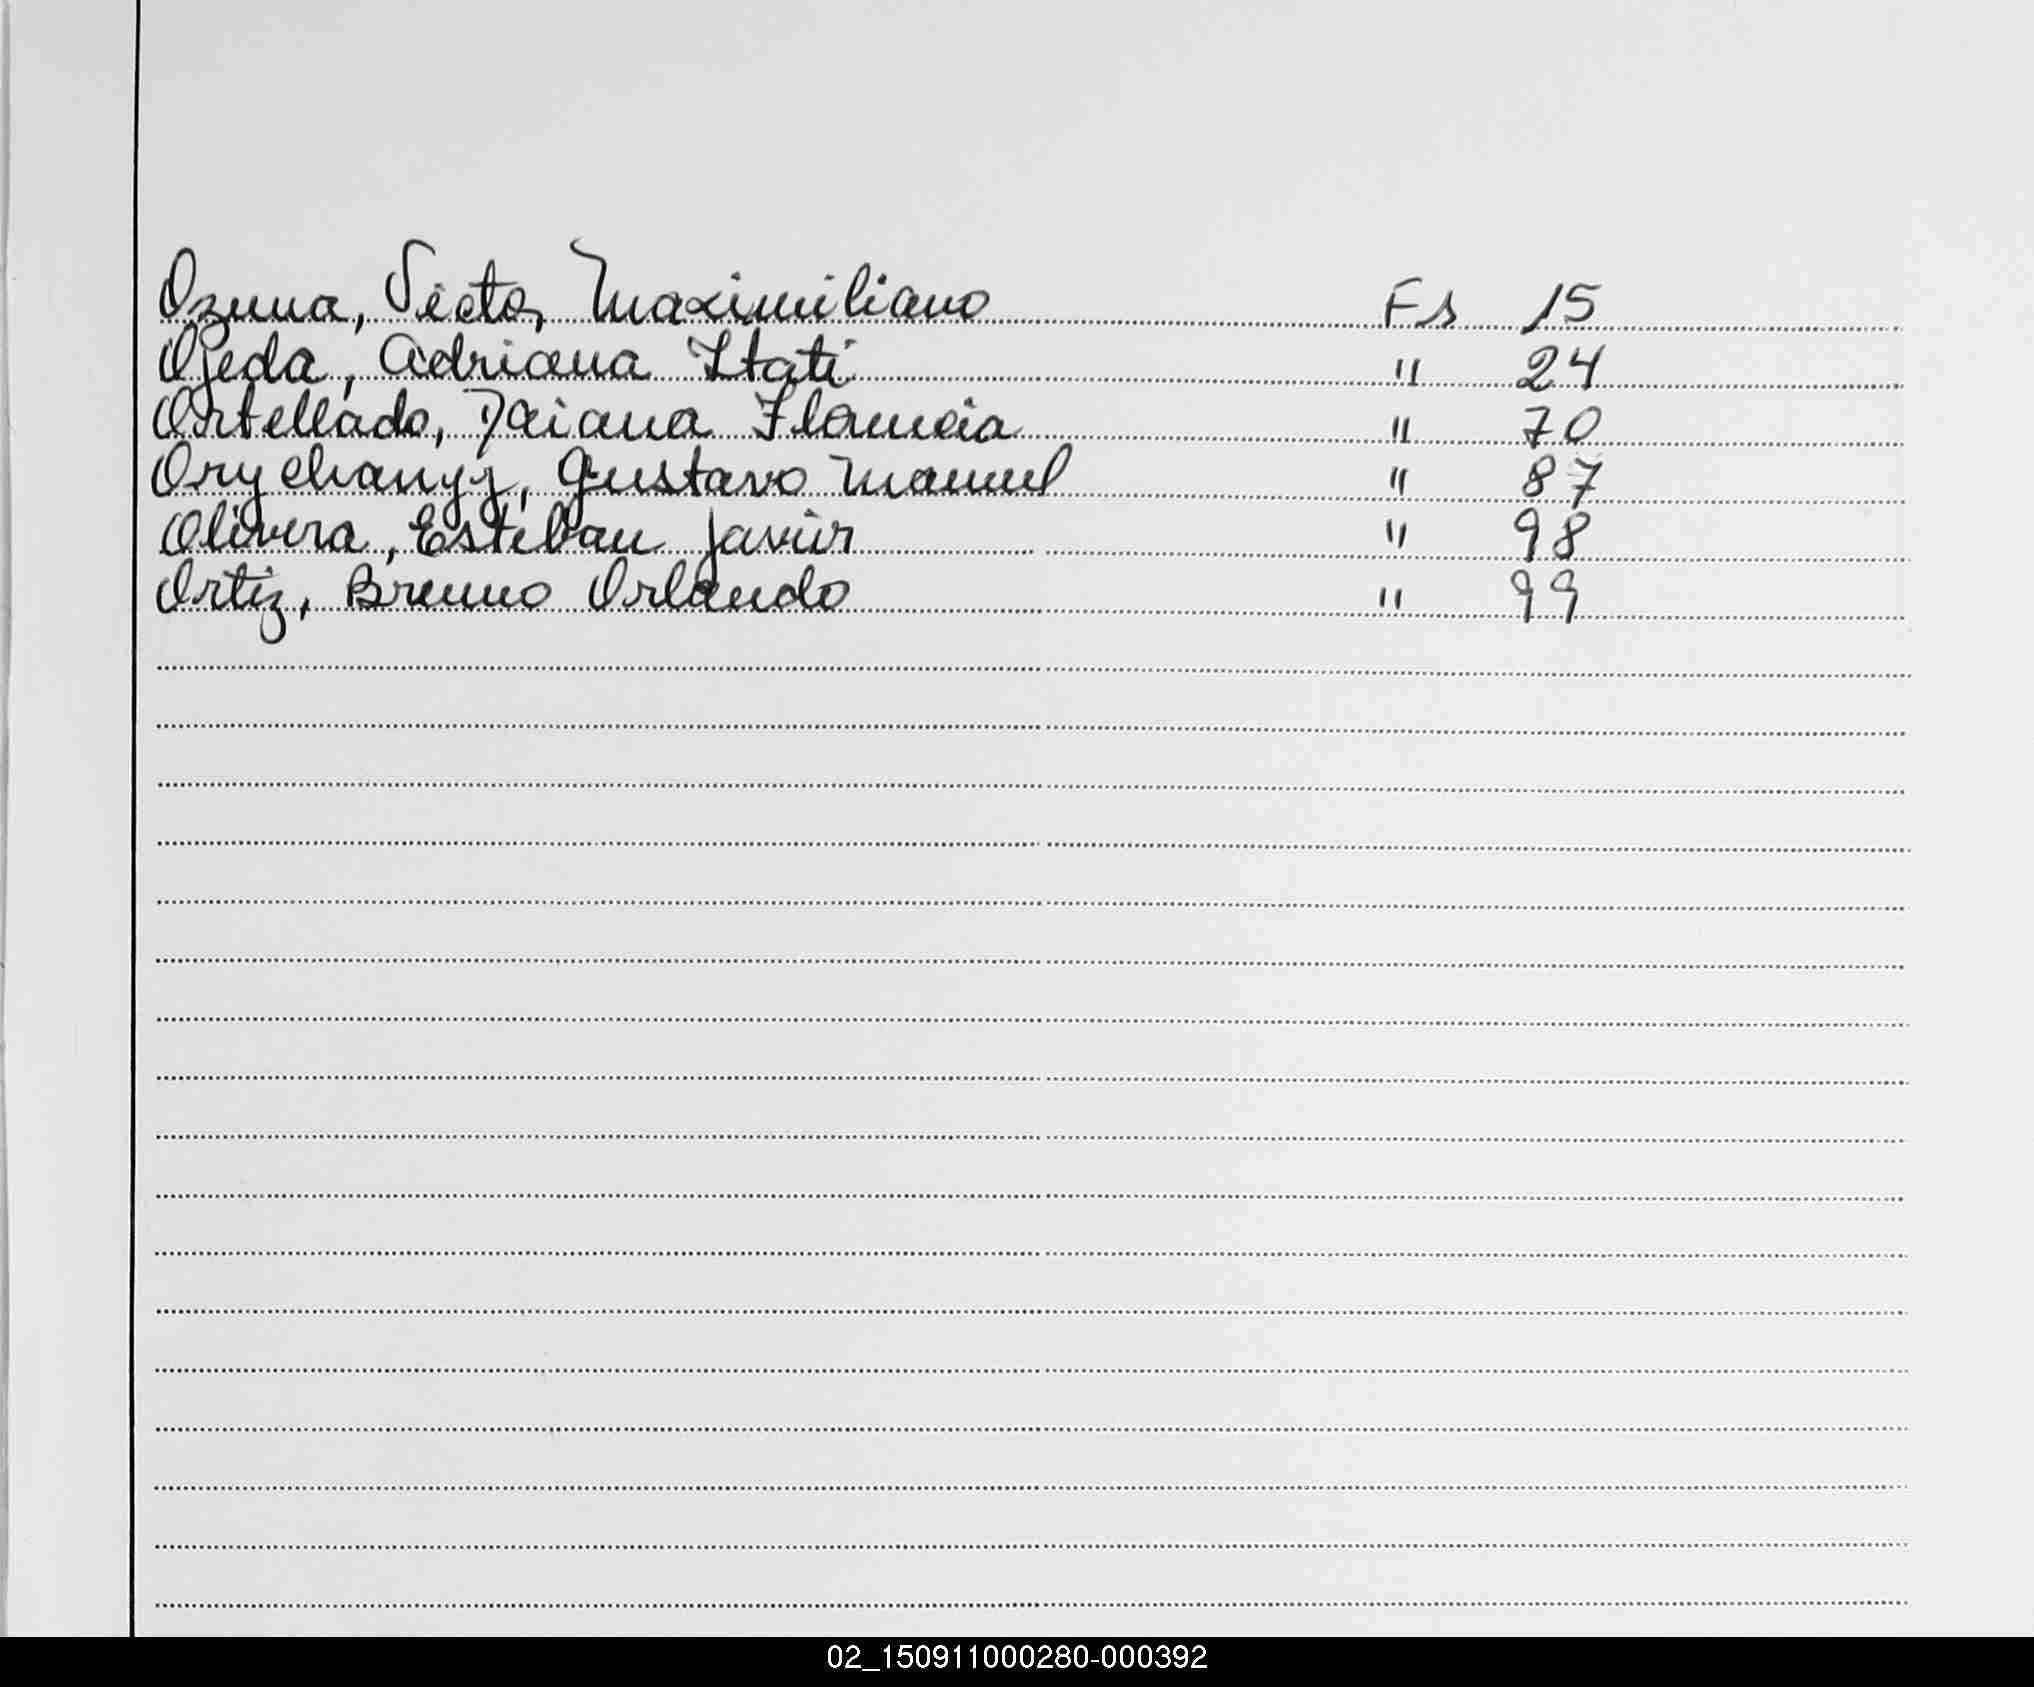 Ozuna, Victor Maximiliano Fs 15
Ojeda, Adriana Itati " 24
Ortellado, Daiana Florencia " 70
Gustavo Manuel " 87
Olivera, Esteban Javier " 98
Ortiz, Brunno Orlando " 99
02_150911000280-000392